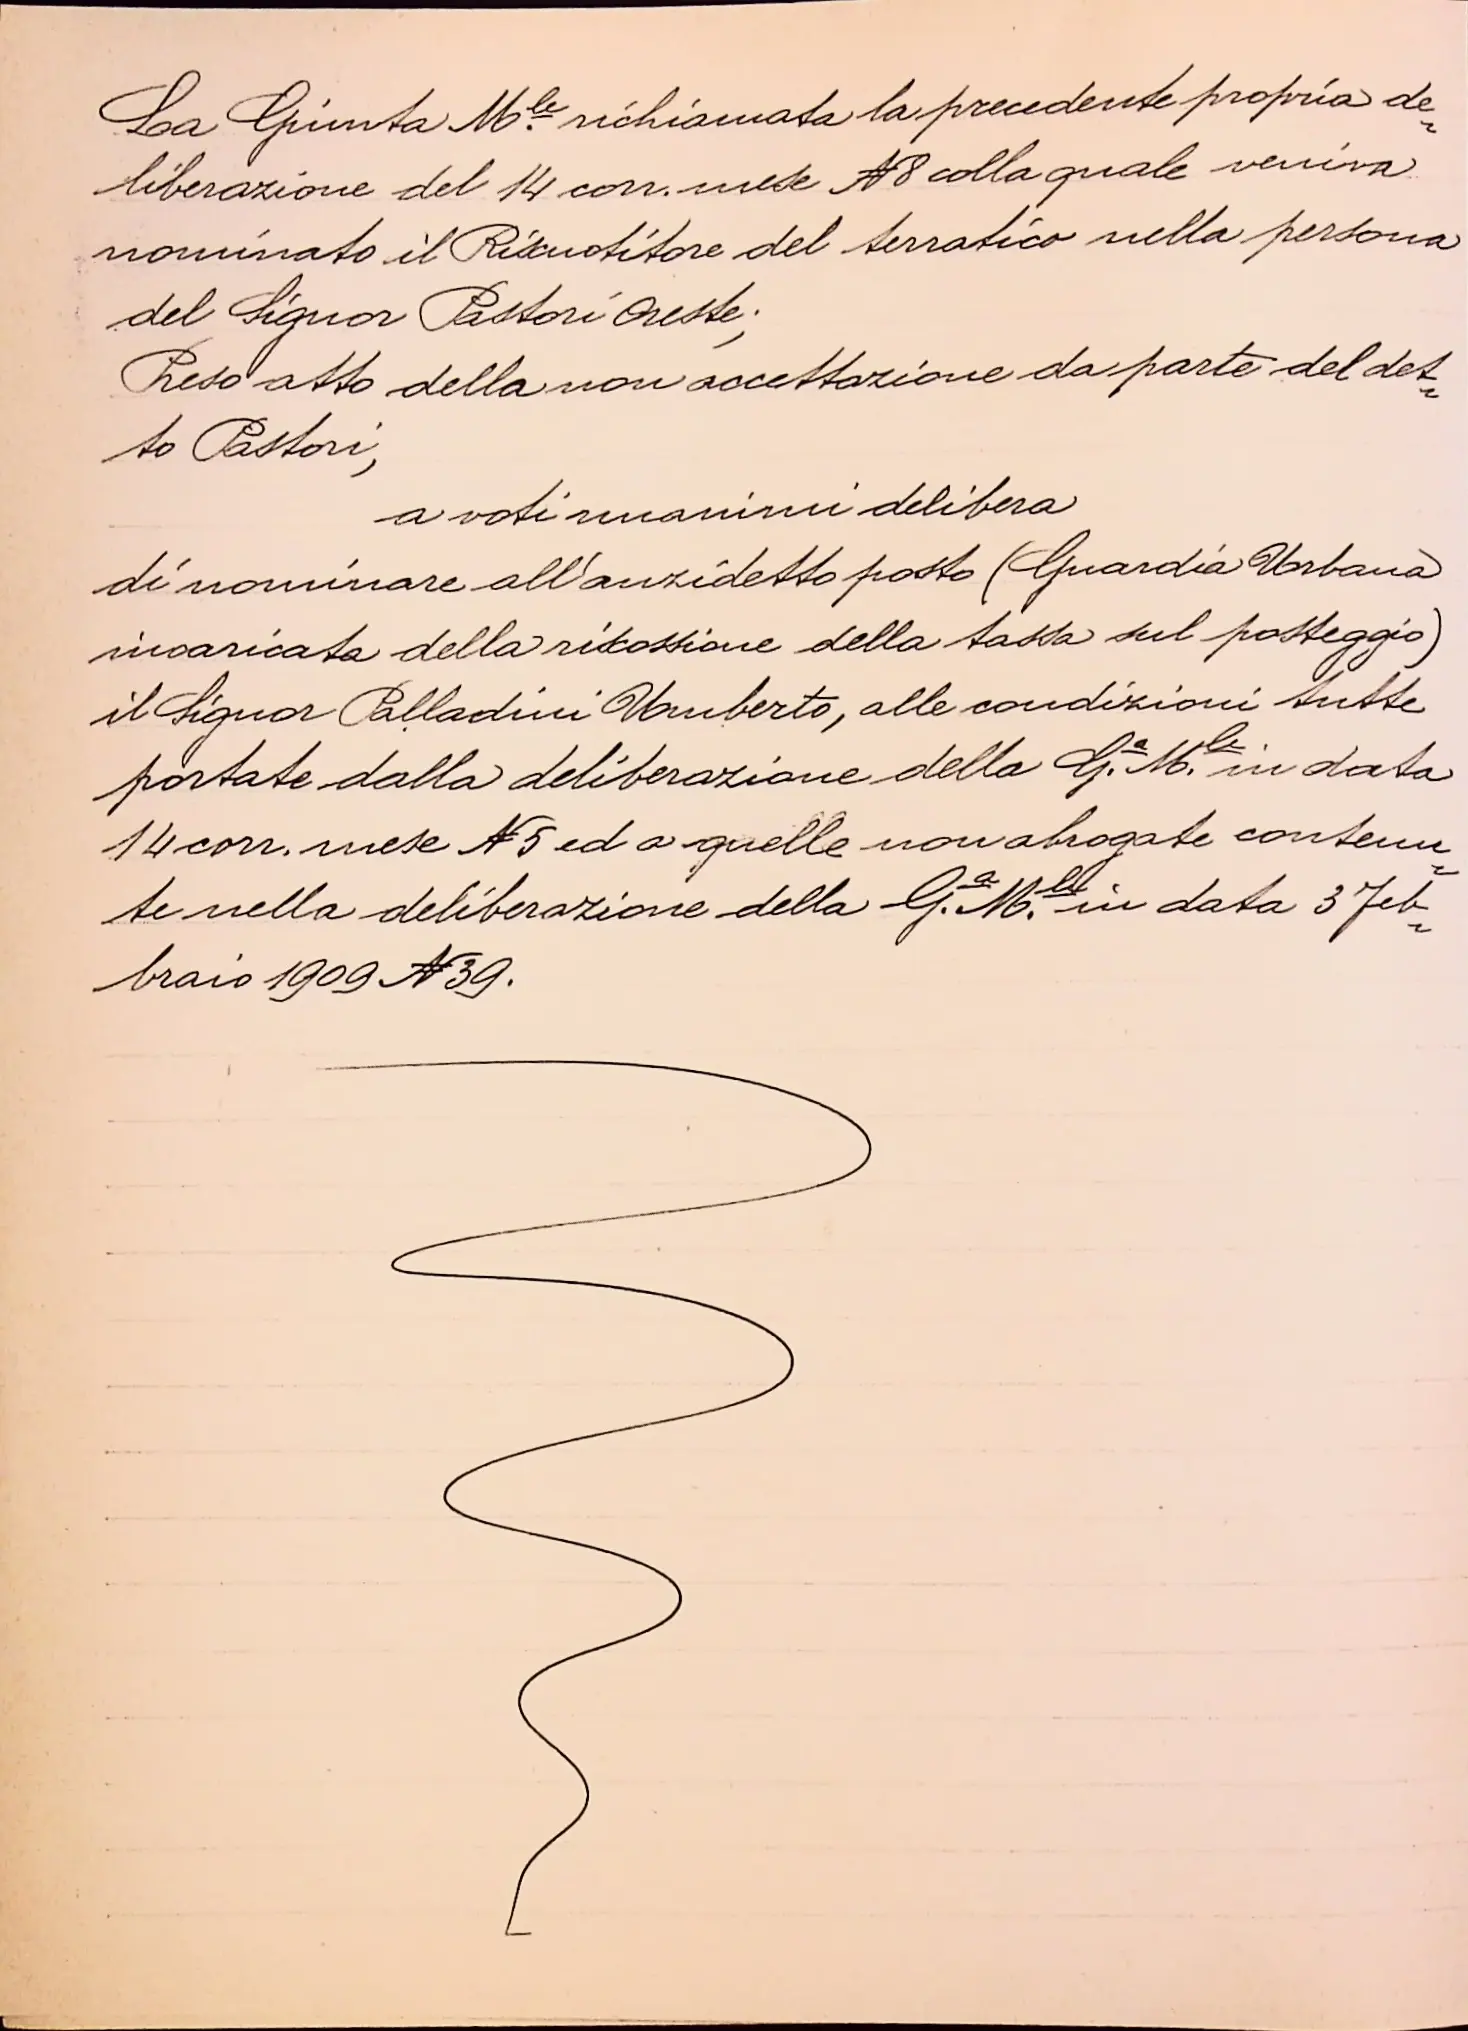 La Giunta M.le richiamata la precedente propria de-
liberazione del 14 corr. mese N 8 colla quale veniva
nominato il Riscuotitore del terratico nella persona
del Signor Pastori Oreste;
Preso atto della non accettazione da parte del det-
to Pastori,
a voti unanimi delibera
di nominare all'anzidetto posto (Guardia Urbana
incaricata della riscossione della tassa sul posteggio)
il Signor Palladini Umberto, alle condizioni tutte
portate dalla deliberazione della G.a M.le in data
14 corr. mese N 5 ed a quelle non abrogate contenu-
te nella deliberazione della G.a M.le in data 3 Feb-
braio 1909 N 39.